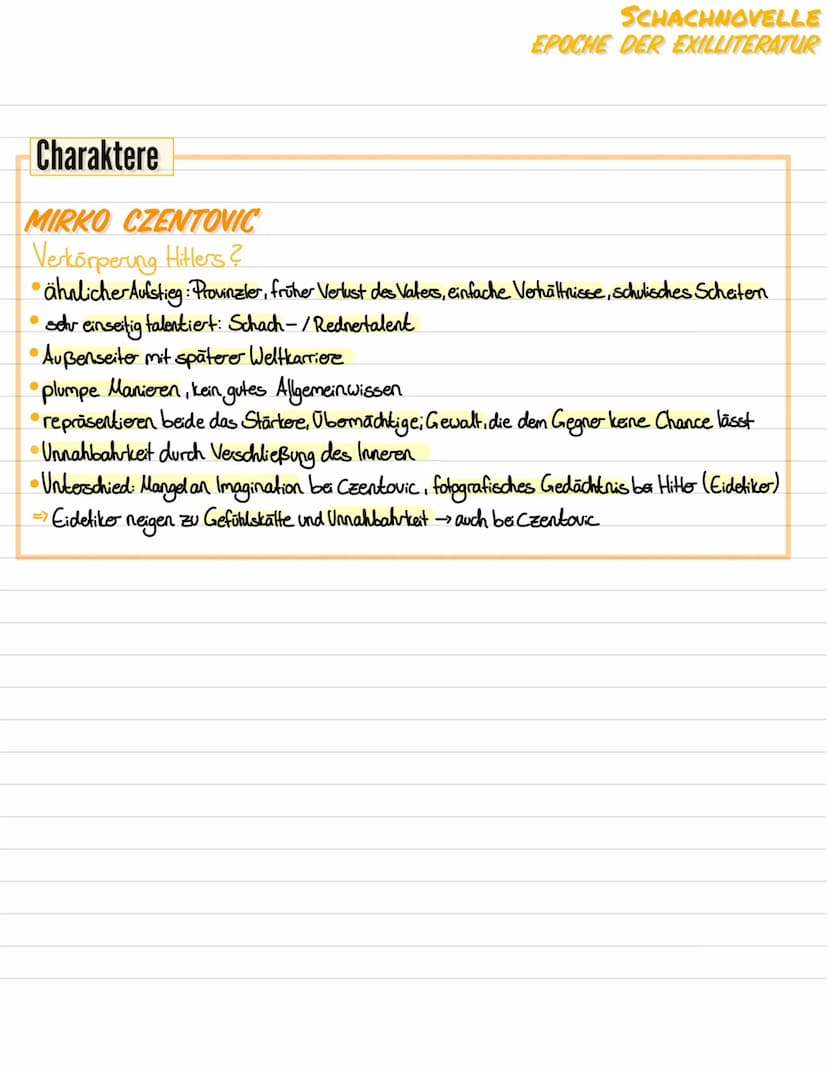 SCHACHNOVELLE
EPOCHE DER EXILLITERATUR
Charaktere
MIRKO CZENTOVIC
Verkörperung Hitlers?
• ähnlicher Aufstieg: Provinzler, früher Verlust des Vaters, einfache Verhältnisse, schulisches Scheitern
• sehr einseitig talentiert: Schach- / Rednertalent
• Außenseiter mit späterer Weltkarriere
• plumpe Manieren, kein gutes Allgemeinwissen
• repräsentieren beide das Stärkere, Übermächtige; Gewalt, die dem Gegner keine Chance lässt
• Unnahbahrkeit durch Verschließung des Inneren
• Unterschied: Mangel an Imagination bei Czentovic, fotografisches Gedächtnis bei Hitler (Eidetiker)
⇒ Eidetiker neigen zu Gefühlskälte und Unnahbahrkeit → auch bei Czentovic